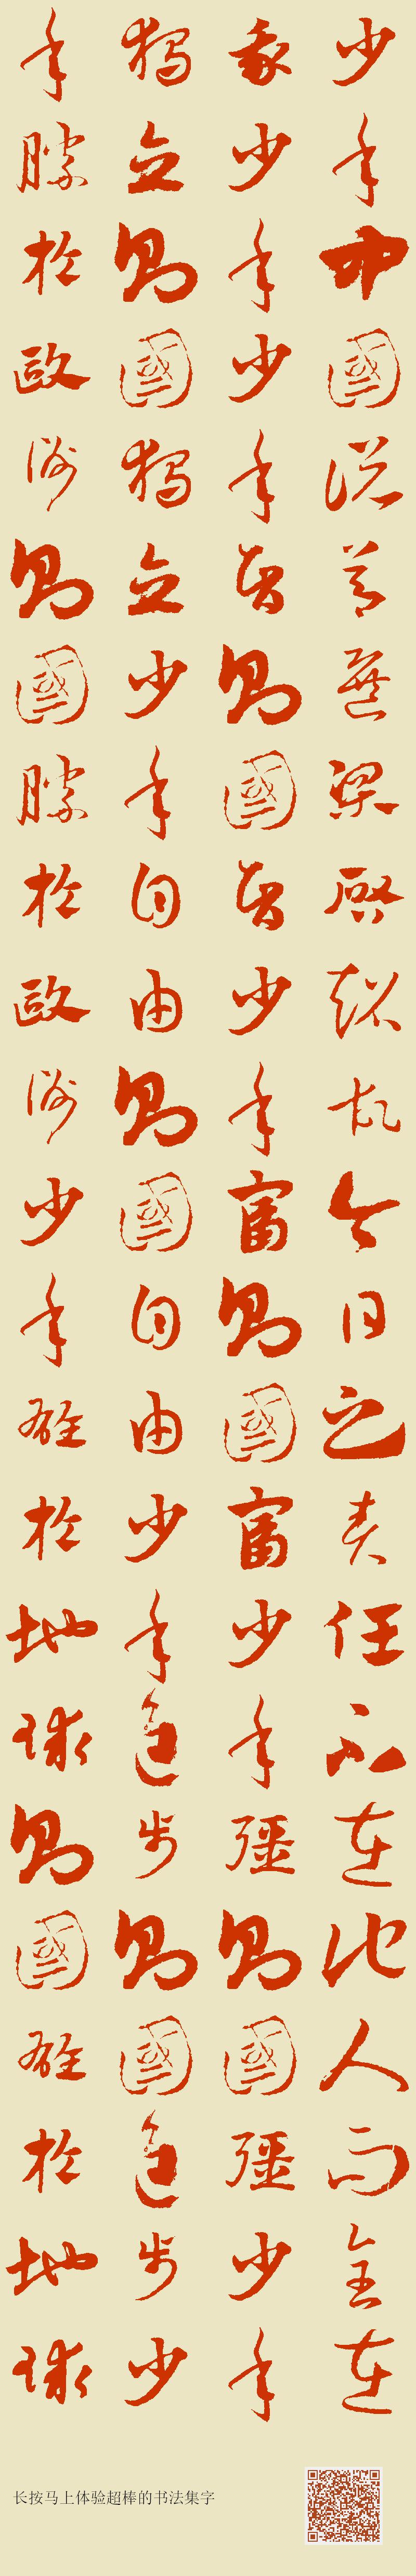 少年中國說節選梁啟超故今日之責任不在他人而全在
我少年少年智則國智少年富則國富少年彊則國彊少年
獨立則國獨立少年自由則國自由少年進步則國進步少
年勝於歐洲則國勝於歐洲少年雄於地球則國雄於地球
长按马上体验超棒的书法集字